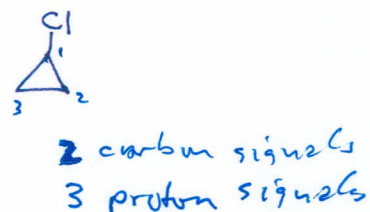 Cl
1
3 2
2 carbon signals
3 proton signals